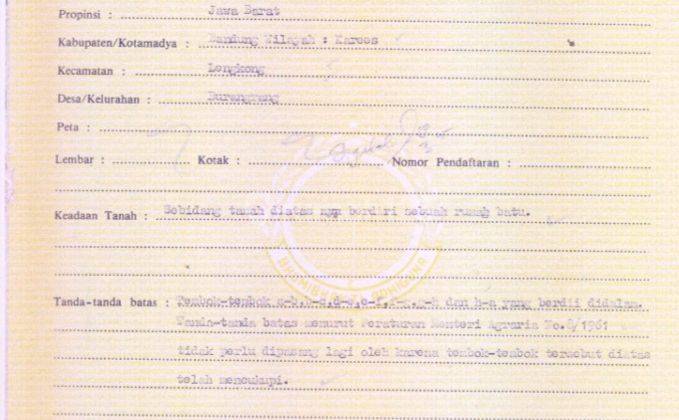 Propinsi : Jawa Barat
Kabupaten/Kotamadya : Bandung Wilayah : Karees
Kecamatan : Lengkong
Desa/Kelurahan : Burangrang
Peta :
Lembar : Kotak : Nomor Pendaftaran :
Keadaan Tanah : Sebidang tanah diatas nya berdiri sebuah rumah batu.
Tanda-tanda batas : Tembok-tembok a-b,b-c,d-e,e-f,f-g,g-h dan h-a yang berdiri didalam.
Tanda-tanda batas menurut Peraturan Menteri Agraria No.8/1961
tidak perlu dipasang lagi oleh karena tembok-tembok tersebut diatas
telah mencukupi.